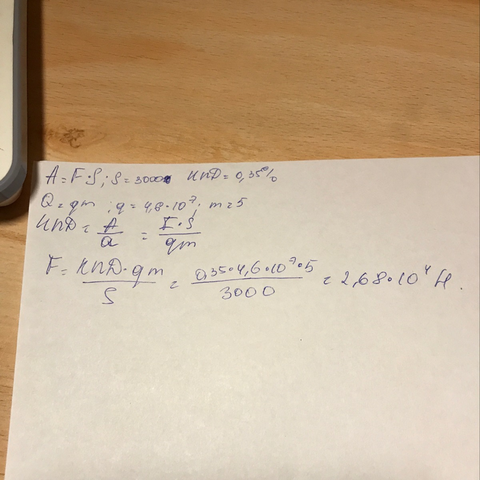 A = F·S; S = 3000 КПД = 0,35%
Q = qm; q = 4,8·10⁷; m = 5
КПД = A/Q = F·S/qm
F = КПД·qm/S = 0,35·4,6·10⁷·5/3000 = 2,68·10⁴ Н.